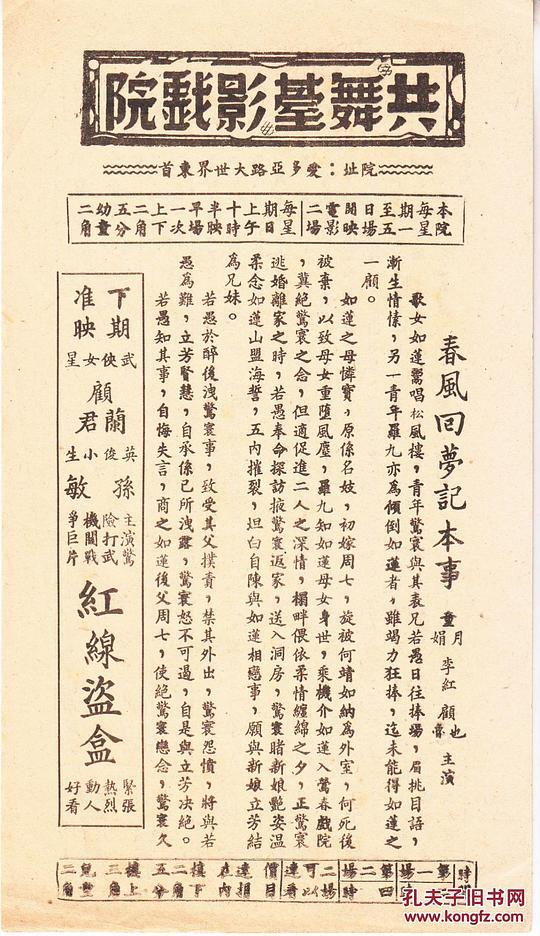 共舞臺影戲院
院址：愛多亞路大世界東首
本院每星期一至五日場開映電影二場
每星期日上午十時半映早場一次
上下二角五分
幼童二角
春風回夢記本事
童月娟 李紅 顧也魯 主演
歌女如蓮鬻唱松風樓，青年驚寰與其表兄若愚日往捧場，眉挑目語，
漸生情愫，另一青年羅九亦為傾倒如蓮者，雖竭力狂捧，迄未能得如蓮之
一顧。
如蓮之母憐寶，原係名妓，初嫁周七，旋被何靖如納為外室，何死後
被棄，以致母女重墮風塵，羅九知如蓮母女身世，乘機介如蓮入鶯春戲院
，冀絕驚寰之念，但適促進二人之深情，榻畔偎依柔情纏綿之夕，正驚寰
逃婚離家之時，若愚奉命探訪掖驚寰返家，送入洞房，驚寰睹新娘艷姿溫
柔念如蓮山盟海誓，五內摧裂，坦白自陳與如蓮相戀事，願與新娘立芳結
為兄妹。
若愚於醉後洩驚寰事，致受其父撲責，禁其外出，驚寰怨憤，將與若
愚為難，立芳賢慧，自承係已所洩露，驚寰怒不可遏，自是與立芳決絕。
若愚知其事，自悔失言，商之如蓮後父周七，使絕驚寰戀念，驚寰久
下期准映
武俠女星
顧蘭君
英俊小生
孫敏
主演驚險打武機關戰爭巨片
紅線盜盒
緊張熱烈動人好看
價目
樓下二角五分
樓上三角
兒童二角
孔夫子旧书网
www.kongfz.com